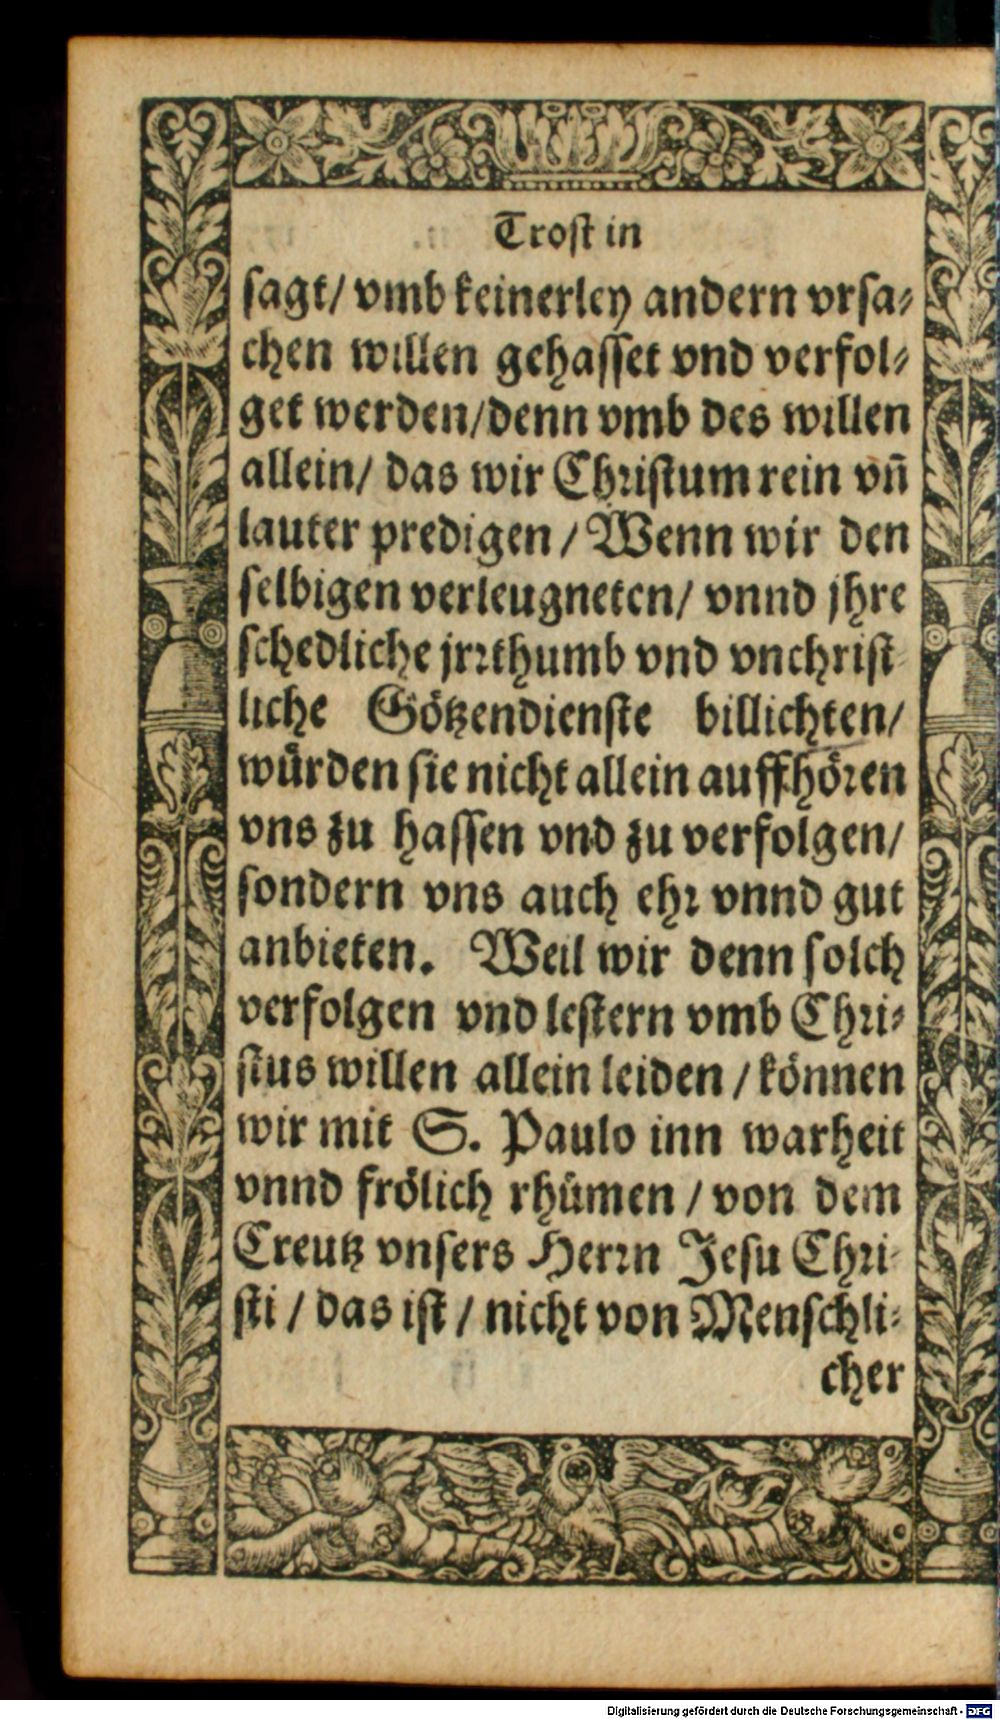 Troſt in
ſagt/ vmb keinerley andern vrſa⸗
chen willen gehaſſet vnd verfol⸗
get werden/denn vmb des willen
allein/ das wir Chꝛiſtum rein vñ
lauter predigen / Wenn wir den
ſelbigen verleugneten/ vnnd jhre
ſchedliche jrꝛthumb vnd vnchriſt⸗
liche Götzendienſte billichten/
würden ſie nicht allein auffhöꝛen
vns zu haſſen vnd zu verfolgen/
ſondern vns auch ehꝛ vnnd gut
anbieten. Weil wir denn ſolch
verfolgen vnd leſtern vmb Chꝛi⸗
ſtus willen allein leiden / können
wir mit S. Paulo inn warheit
vnnd frölich rhümen / von dem
Creutz vnſers Herꝛn Jeſu Chꝛi⸗
ſti / das iſt / nicht von Menſchli⸗
cher
Digitalisierung gefördert durch die Deutsche Forschungsgemeinschaft - DFG